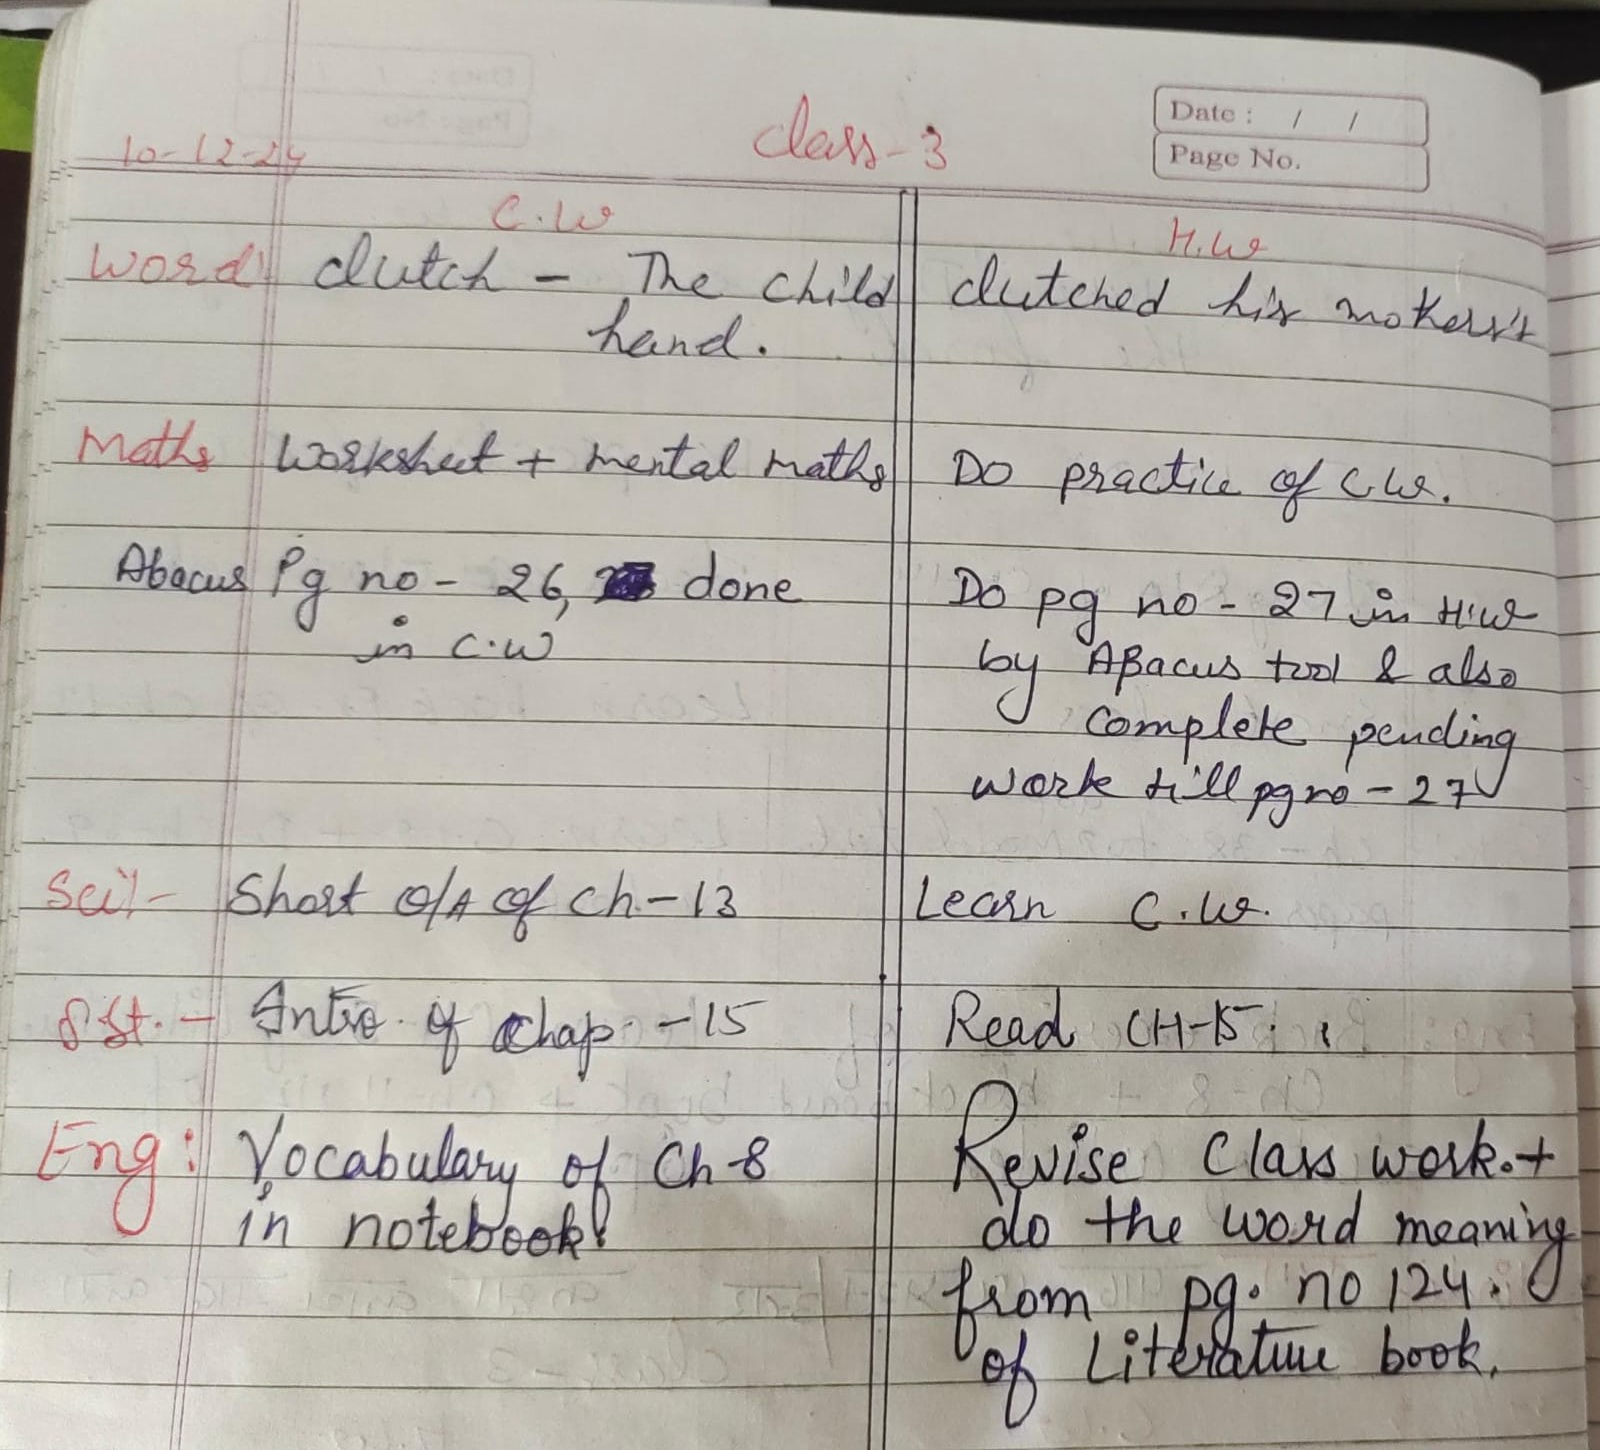 Date : / /
Page No.
10-12-24 Class-3
C.W H.W
Word: Clutch - The child clutched his mothers's
hand.
Maths Worksheet + Mental maths Do practice of C.W.
Abacus Pg no - 26, done Do pg no - 27 in H.W
in C.W by ABacus tool & also
complete pending
work till pg no - 27
Sci:- Short Q/A of Ch-13 Learn C.W.
S.St. - Intro. of Chap - 15 Read CH-15.
Eng: Vocabulary of Ch-8 Revise Class work. +
in notebook. do the word meaning
from pg. no 124.
of Literature book.